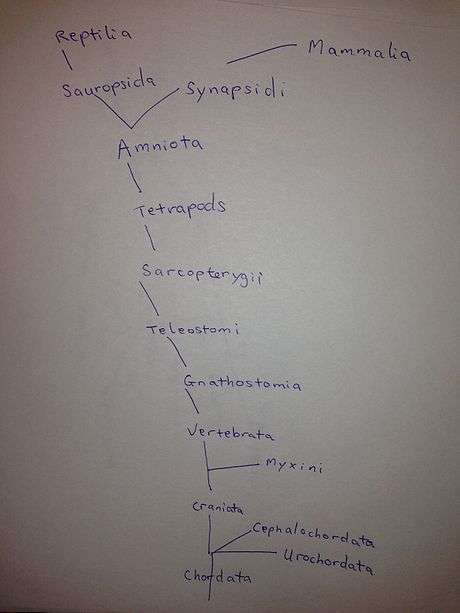 Reptilia
Mammalia
Sauropsida Synapsidi
Amniota
Tetrapods
Sarcopterygii
Teleostomi
Gnathostomia
Vertebrata
Myxini
Craniata
Cephalochordata
Urochordata
Chordata